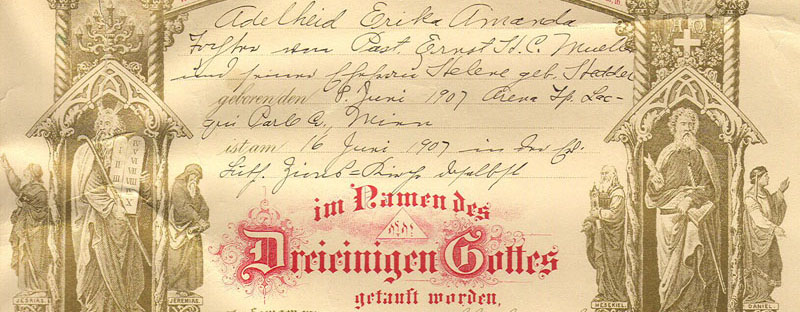 Adelheid Erika Amanda
Tochter von Past. Ernst H. C. Mueller
und seiner Ehefrau Helene geb.
geboren den 8. Juni 1907 Arena Tp. Lac-
qui Parle Co, Minn
ist am 16 Juni 1907 in der Ev.
Luth. Zions=Kirche daselbst
im Namen des
Dreieinigen Gottes
getauft worden,
JESAIAS.
JEREMIAS.
HESEKIEL.
DANIEL.
I
II
III
VI
VII
VIII
X